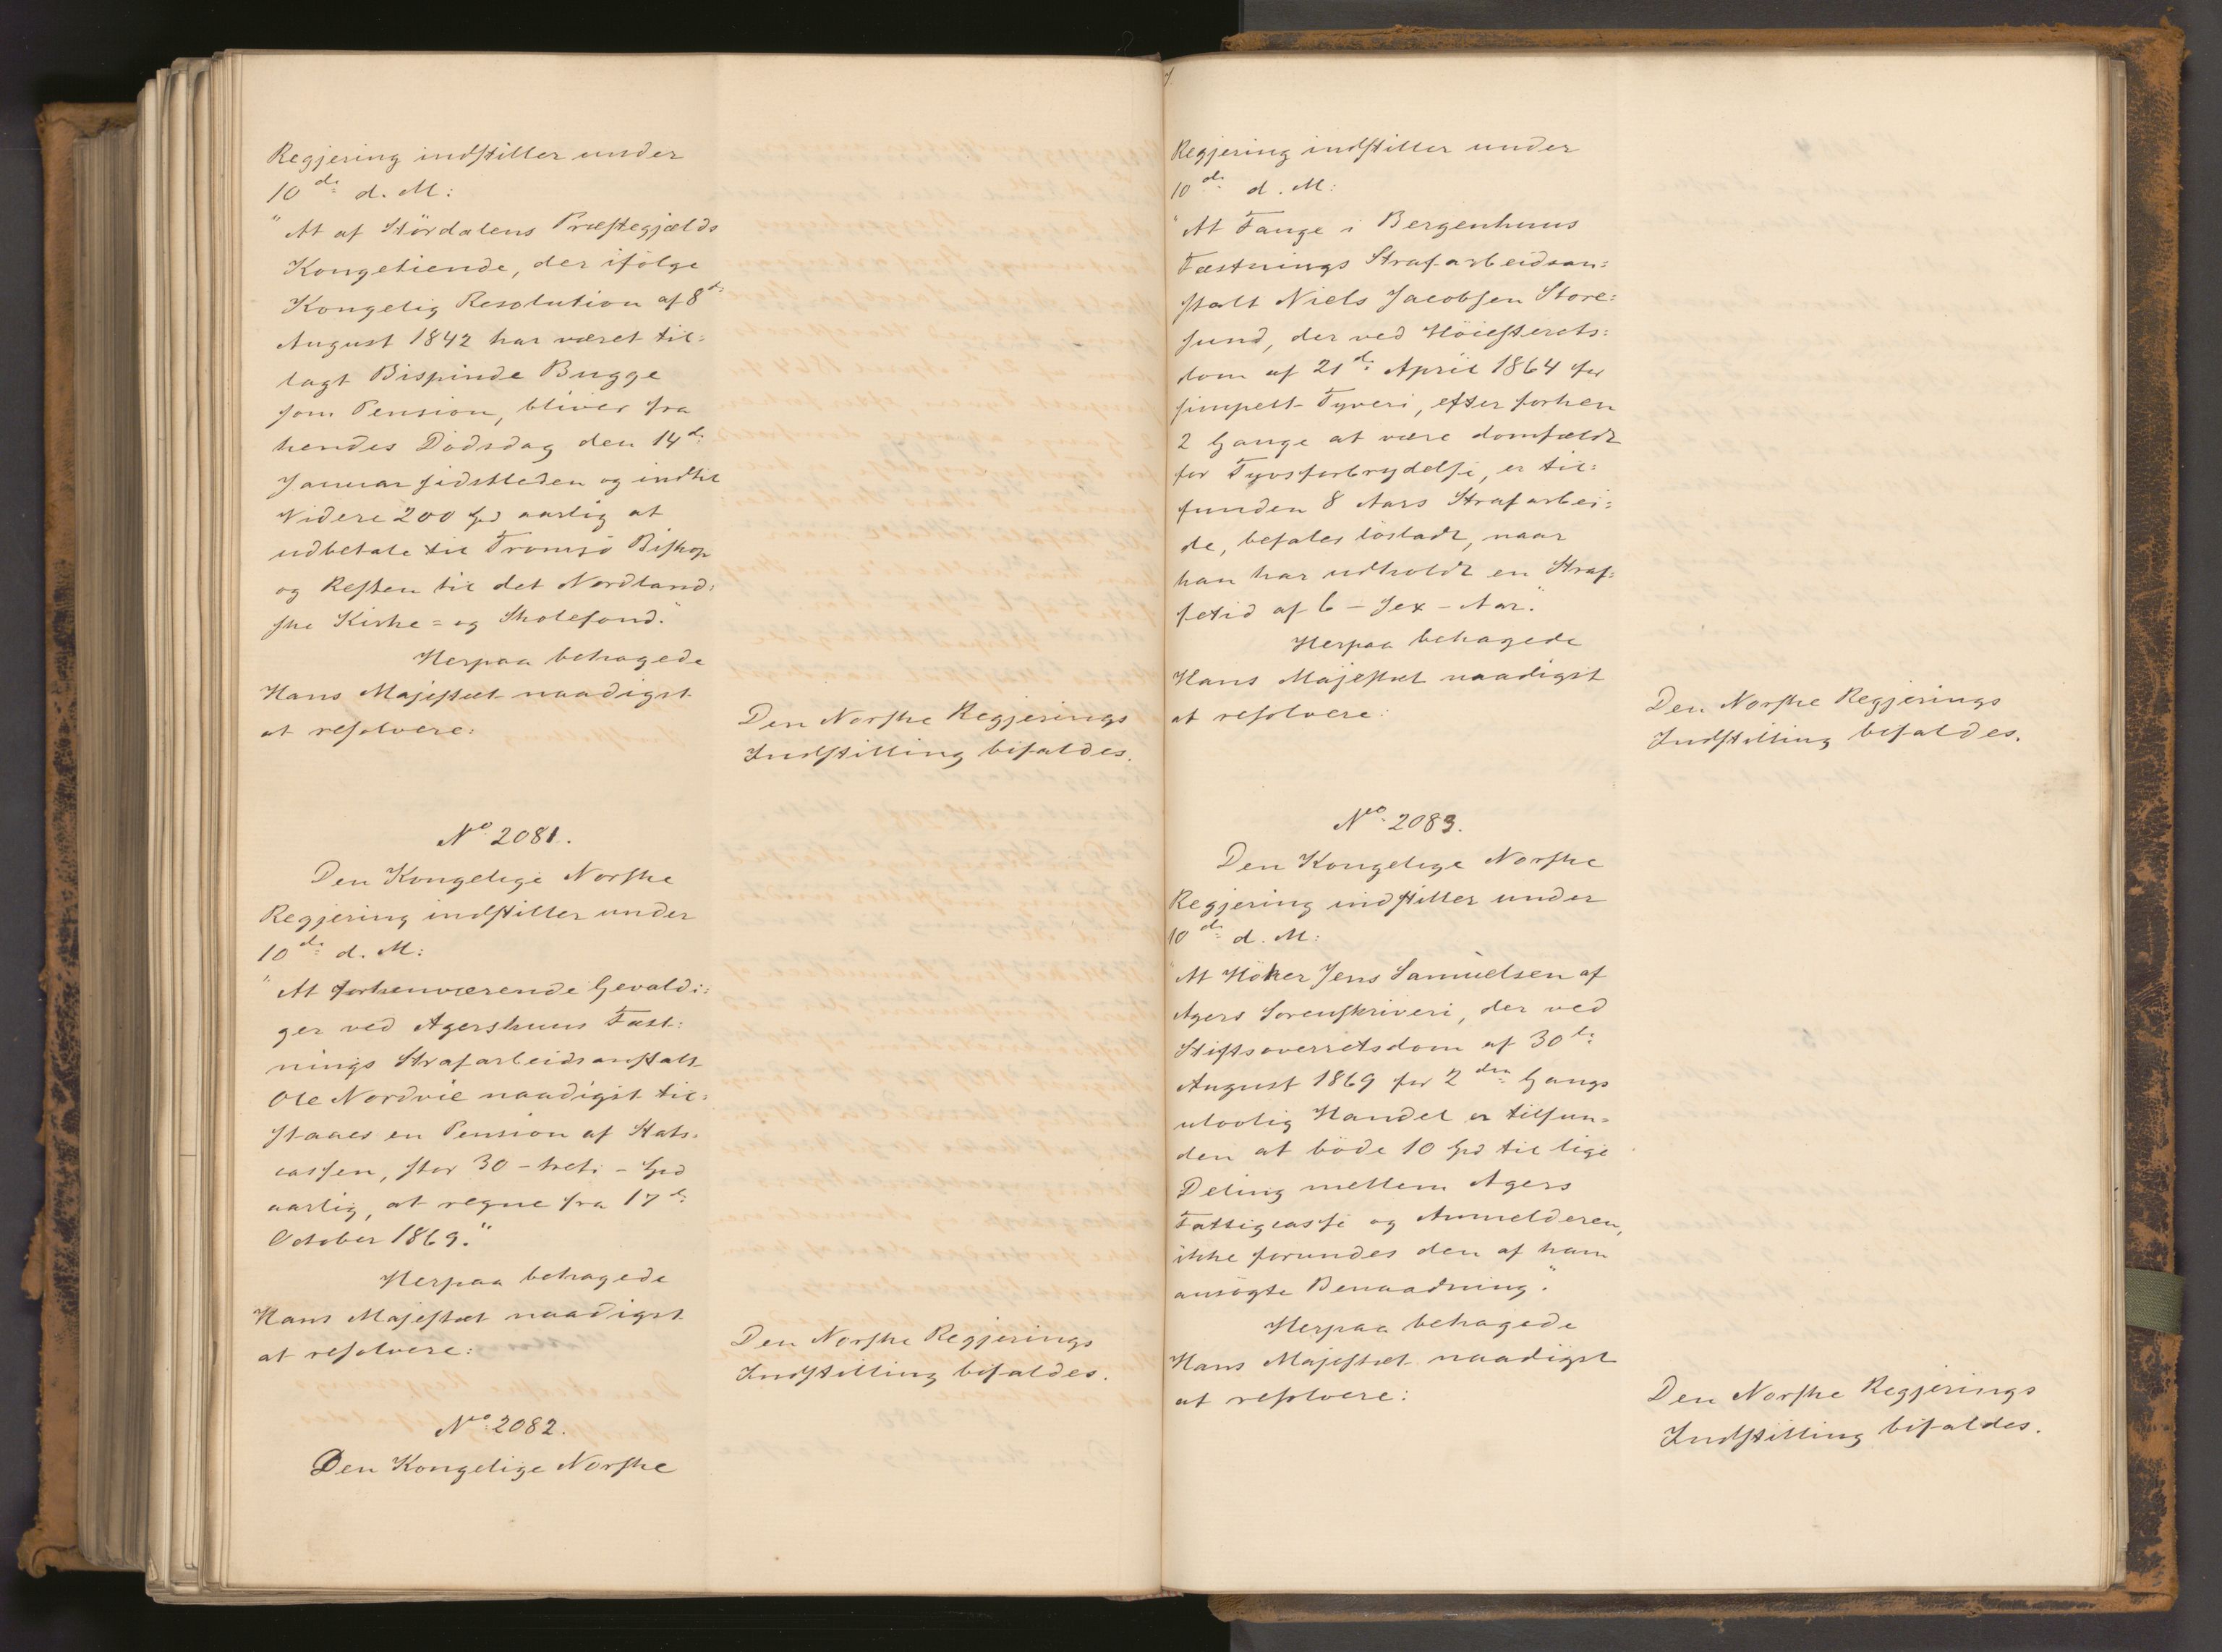 Regjering indstiller under
10de d. M:
"At af Stördalens Præstegjælds
Kongetiende, der ifølge
Kongelig Resolution af 8de
August 1842 har været til=
lagt Bispinde Bugge
som Pension, bliver fra
hendes Dødsdag den 14de
Januar sidstleden og indtil
Videre 200 Spd aarlig at
udbetale til Tromsö Biskop
og Resten til det Nordland=
ske Kirke= og Skolefond."
Herpaa behagede
Hans Majestæt naadigst
at resolvere:
Den Norske Regjerings
Indstilling bifaldes.
No 2081.
Den Kongelige Norske
Regjering indstiller under
10de d. M:
"At forhenværende Gevaldi=
ger ved Agershuus Fæst=
nings Strafarbeidsanstalt
Ole Nordvie naadigst til=
staaes en Pension af Stats=
cassen, stor 30 - treti - Spd
aarlig, at regne fra 17de
October 1869."
Herpaa behagede
Hans Majestæt naadigst
at resolvere:
Den Norske Regjerings
Indstilling bifaldes.
No 2082.
Den Kongelige Norske
Regjering indstiller under
10de d. M:
"At Fange i Bergenhuus
Fæstnings Strafarbeidsan=
stalt Niels Jacobsen Store=
sund, der ved Höiesterets=
dom af 21de April 1864 for
simpelt Tyveri, efter forhen
2 Gange at være domfældt
for Tyvsforbrydelse, er til=
funden 8 Aars Strafarbei=
de, befales lösladt, naar
han har udholdt en Straf=
fetid af 6 - sex - Aar."
Herpaa behagede
Hans Majestæt naadigst
at resolvere:
Den Norske Regjerings
Indstilling bifaldes.
No 2083.
Den Kongelige Norske
Regjering indstiller under
10de d. M:
"At Höker Jens Samuelsen af
Agers Sorenskriveri, der ved
Stiftsoverretsdom af 30te
August 1869 for 2den Gangs
ulovlig Handel er tilfun=
den at böde 10 Spd til lige
Deling mellem Agers
Fattigcasse og Anmelderen,
ikke forundes den af ham
ansögte Benaadning."
Herpaa behagede
Hans Majestæt naadigst
at resolvere:
Den Norske Regjerings
Indstilling bifaldes.